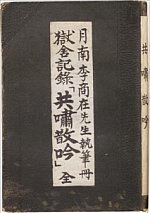 月南李商在先生執筆冊
獄舍記錄「共嘯散吟」全
共嘯散吟